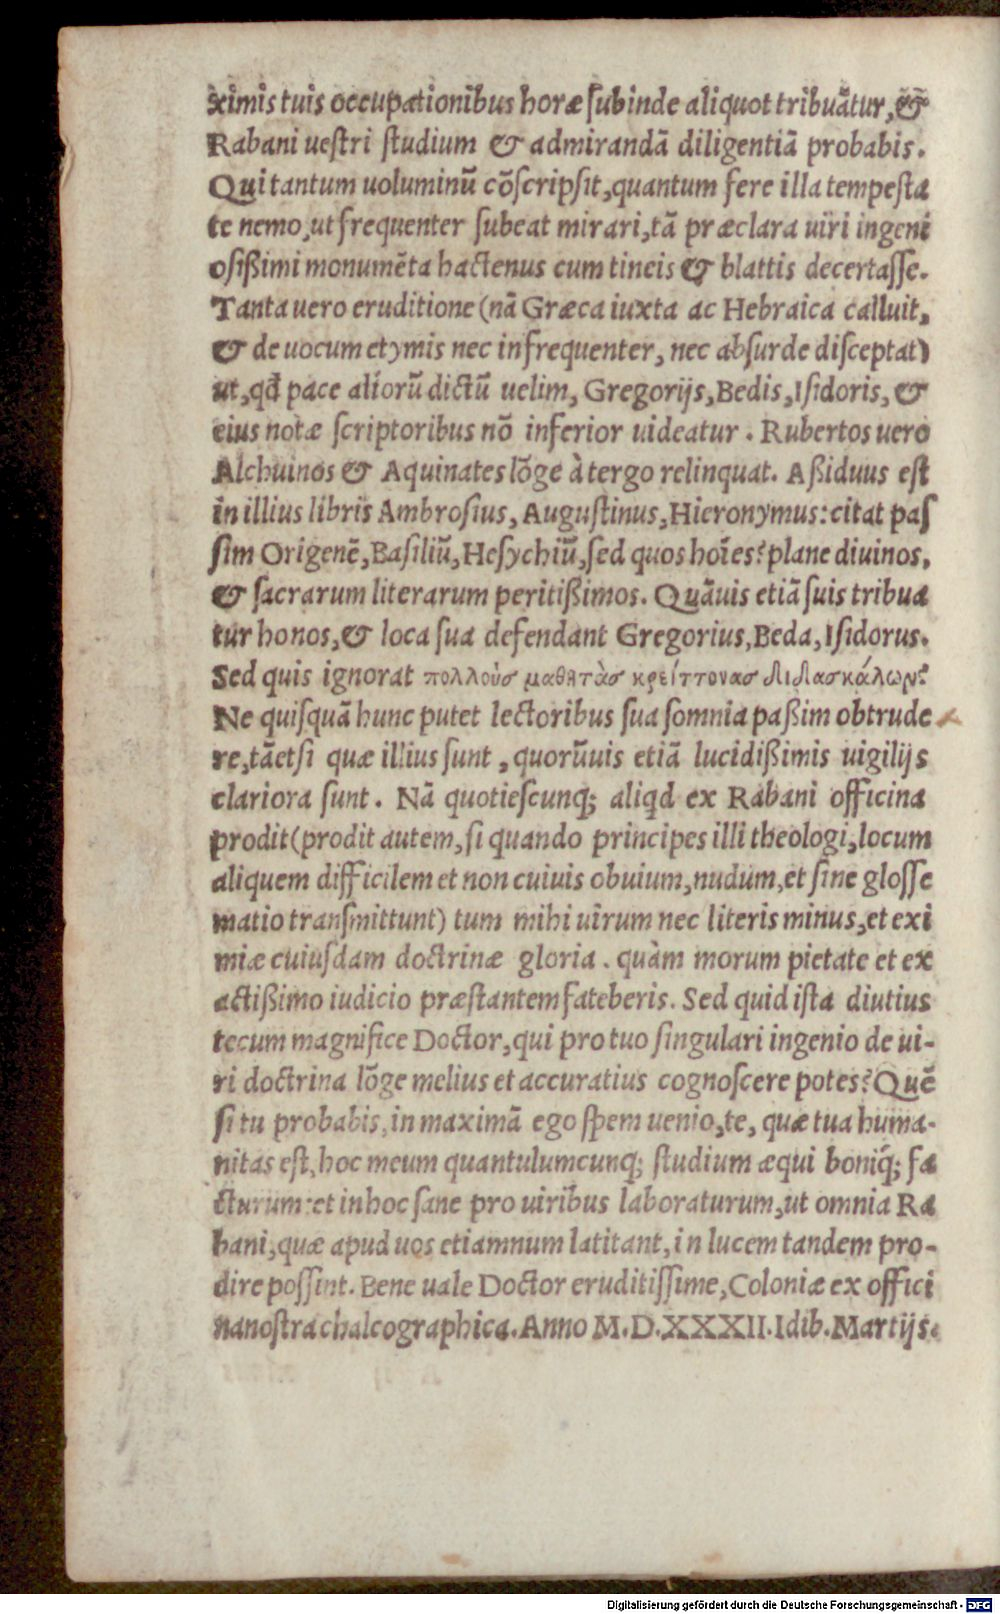 ximis tuis occupationibus horæ ſubinde aliquot tribuãtur, &
Rabani ueſtri ſtudium & admirandã diligentiã probabis.
Qui tantum uoluminũ cõſcripſit, quantum fere illa tempeſta
te nemo, ut frequenter ſubeat mirari, tã præclara uiri ingeni
oſißimi monumẽta hactenus cum tineis & blattis decertaſſe.
Tanta uero eruditione (nã Græca iuxta ac Hebraica calluit,
& de uocum etymis nec infrequenter, nec abſurde diſceptat)
ut, qđ pace aliorũ dictũ uelim, Gregorijs, Bedis, Iſidoris, &
eius notæ ſcriptoribus nõ inferior uideatur. Rubertos uero
Alchuinos & Aquinates lõge à tergo relinquat. Aßiduus eſt
in illius libris Ambroſius, Auguſtinus, Hieronymus: citat paſ
ſim Origenẽ, Baſiliũ, Heſychiũ, ſed quos hoĩes? plane diuinos,
& ſacrarum literarum peritißimos. Quãuis etiã ſuis tribua
tur honos, & loca ſua defendant Gregorius, Beda, Iſidorus.
Sed quis ignorat πολλοὺσ μαθητὰσ κρείττονασ διδασκάλων?
Ne quiſquã hunc putet lectoribus ſua ſomnia paßim obtrude
re, tãetſi quæ illius ſunt, quorũuis etiã lucidißimis uigilijs
clariora ſunt. Nã quotieſcunq; aliqd ex Rabani officina
prodit (prodit autem, ſi quando principes illi theologi, locum
aliquem difficilem et non cuiuis obuium, nudum, et ſine gloſſe
matio tranſmittunt) tum mihi uirum nec literis minus, et exi
miæ cuiuſdam doctrinæ gloria. quàm morum pietate et ex
actißimo iudicio præſtantem fateberis. Sed quid iſta diutius
tecum magnifice Doctor, qui pro tuo ſingulari ingenio de ui-
ri doctrina lõge melius et accuratius cognoſcere potes? Quẽ
ſi tu probabis, in maximã ego ſpem uenio, te, quæ tua huma-
nitas eſt, hoc meum quantulumcunq; ſtudium æqui boniq́; fa
cturum: et in hoc ſane pro uiribus laboraturum, ut omnia Ra
bani, quæ apud uos etiamnum latitant, in lucem tandem pro-
dire poſſint. Bene uale Doctor eruditiſſime, Coloniæ ex offici
na noſtra chalcographica. Anno M.D.XXXII. Idib. Martijs.
Digitalisierung gefördert durch die Deutsche Forschungsgemeinschaft - DFG